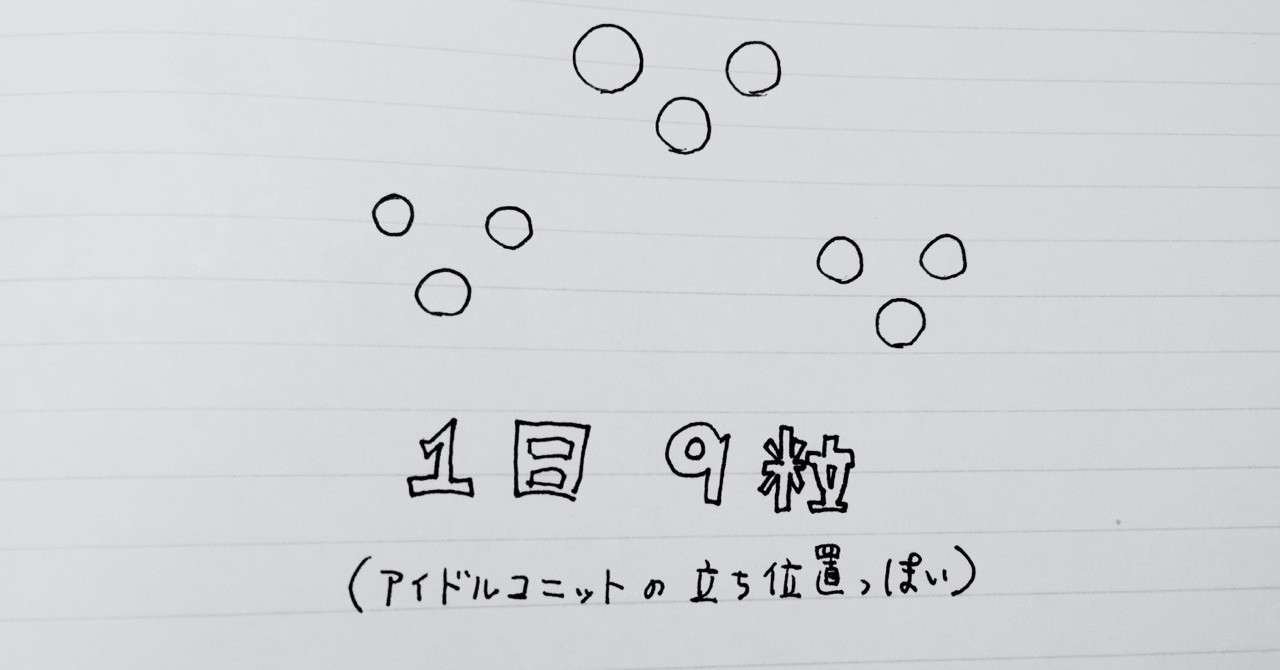 1日 9粒
(アイドルユニットの立ち位置っぽい)